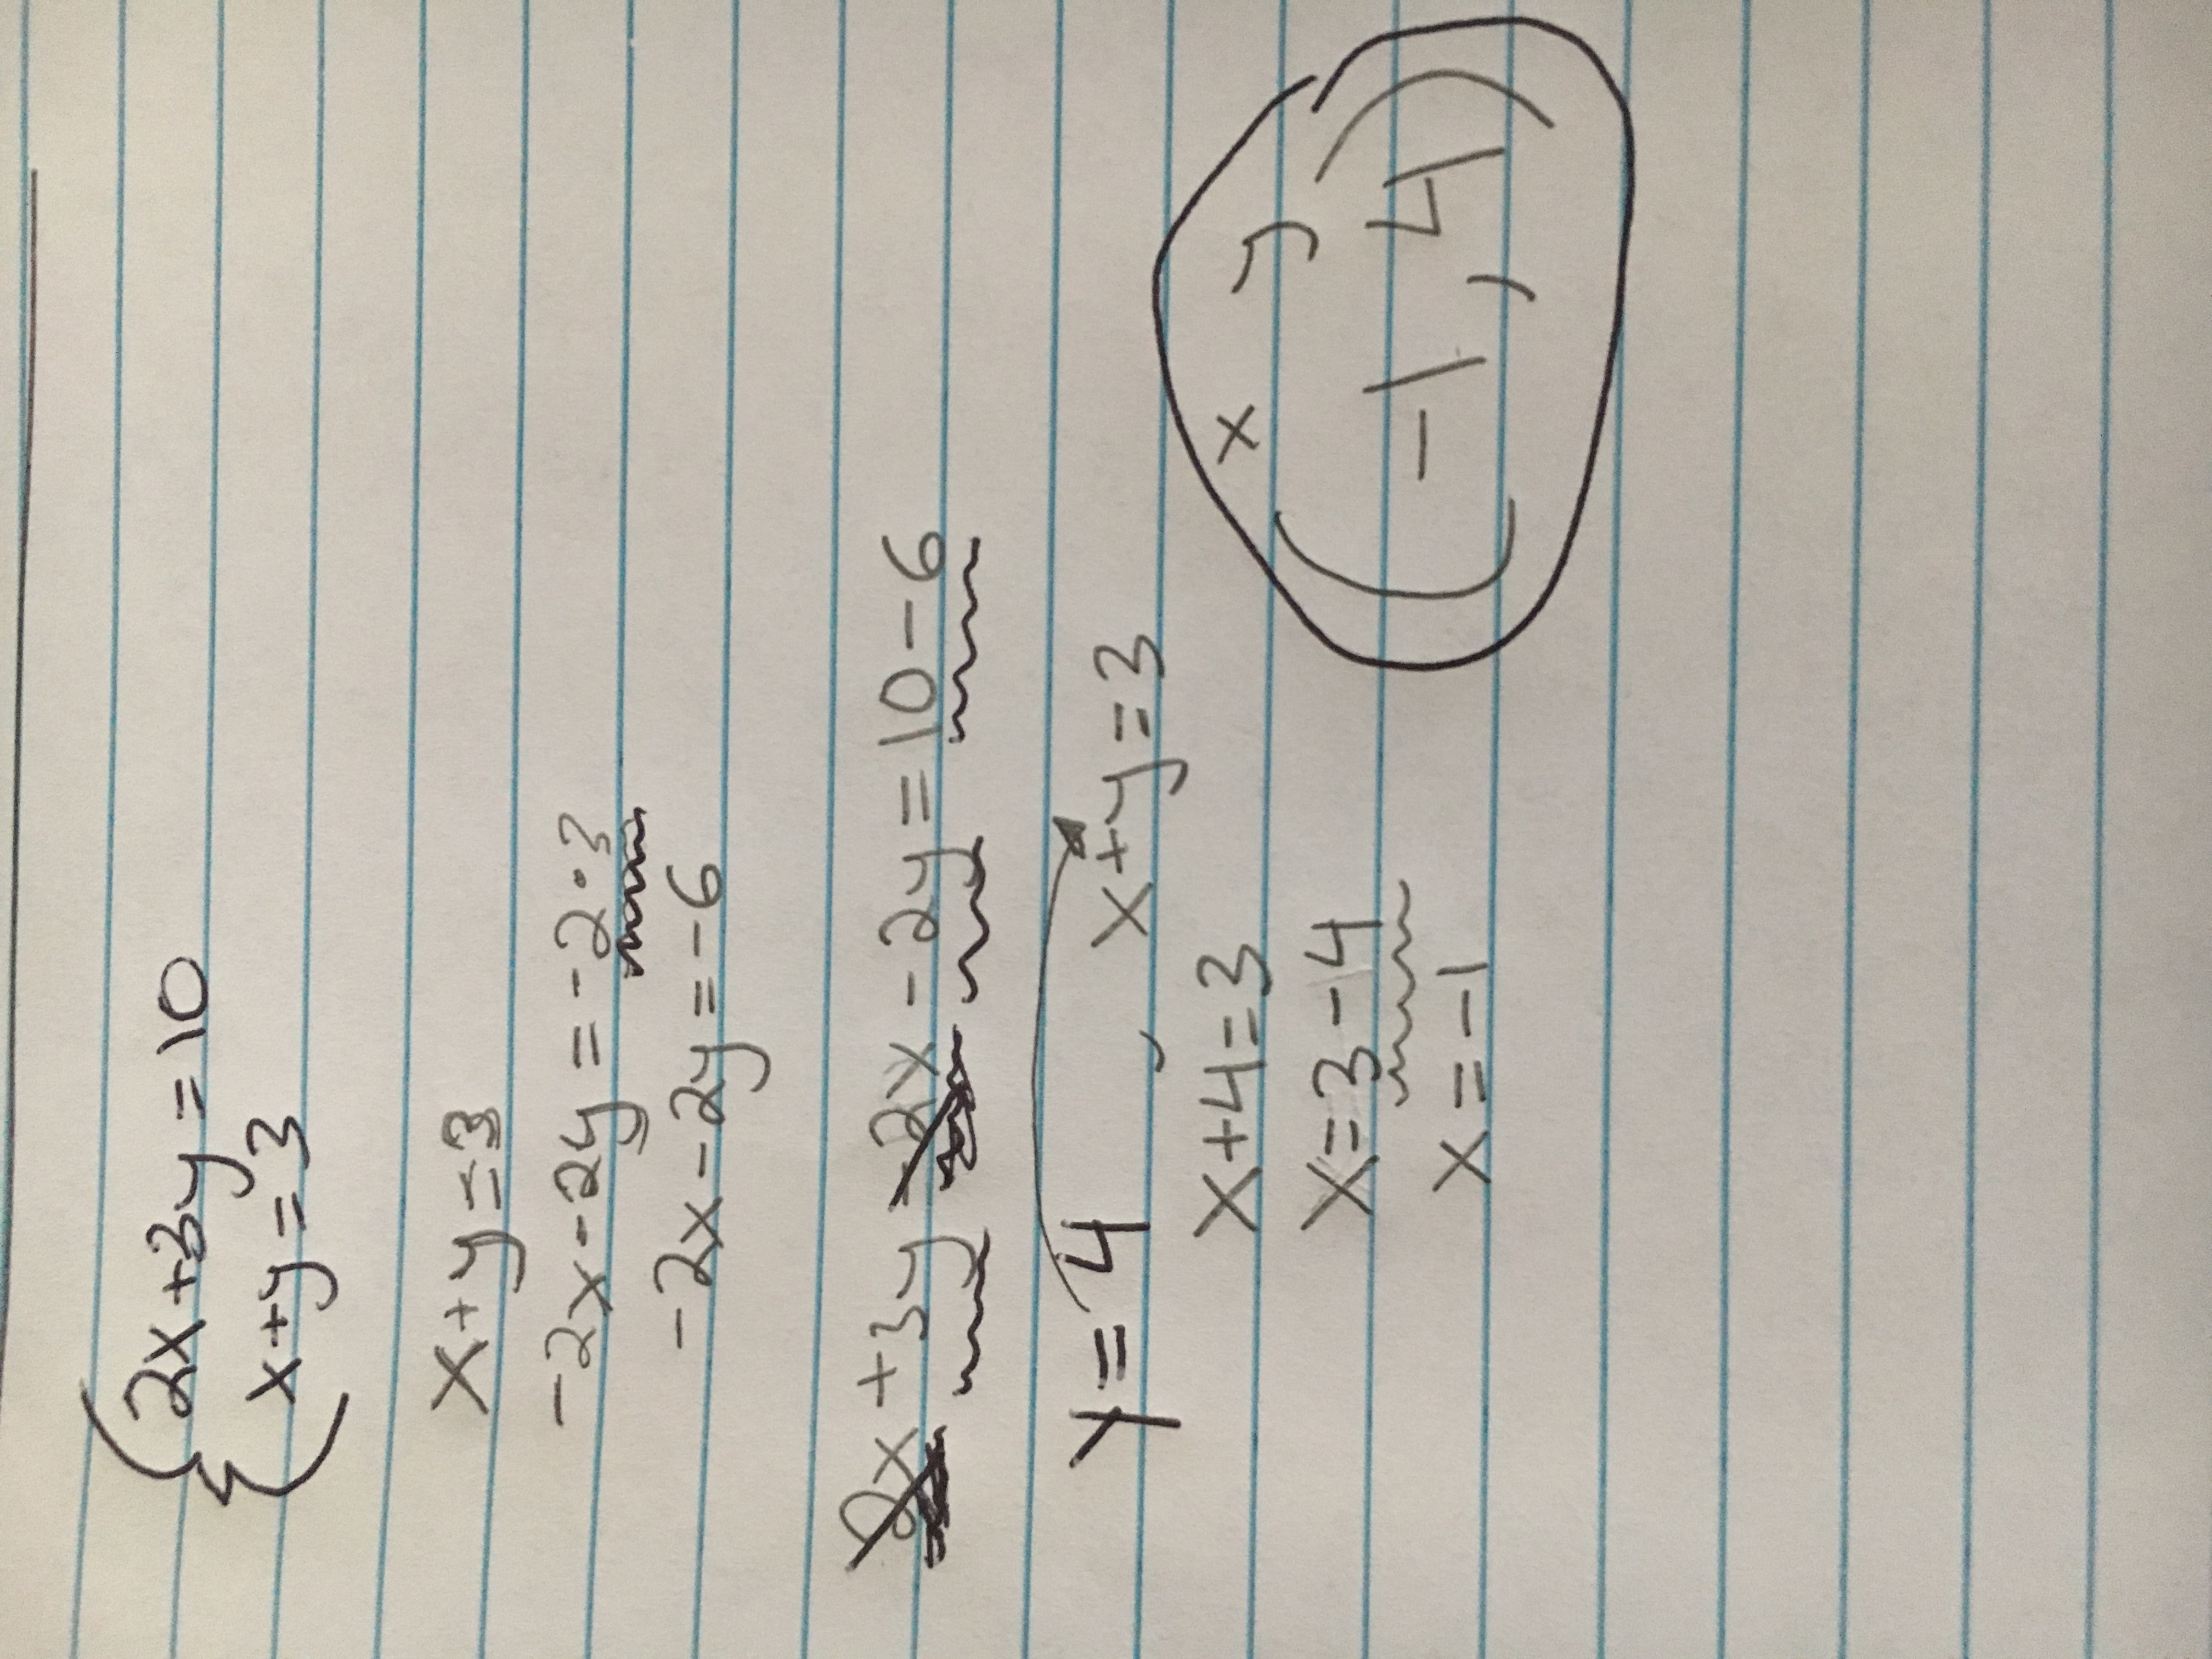 2x+3y=10
x+y=3
x+y=3
-2x-2y=-2·3
-2x-2y=-6
2x+3y-2x-2y=10-6
y=4, x+y=3
x+4=3
x=3-4
x=-1
x y
(-1,4)